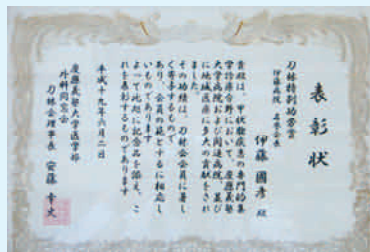 表彰状
刀林特別功労賞
伊藤病院 名誉会長
伊藤 國彦 殿
貴殿は、甲状腺疾患の専門的集
学診療分野において、慶應義塾
大学病院および関連病院、並び
に地域医療に多大の貢献をされ
ました。
その功績は、刀林会会員に著し
く寄与するもので
あり、会員の範とするに相応し
いものであります
よって此処に記念品を添え、こ
れを表彰するものであります
平成十九年六月二日
慶應義塾大学医学部
外科同窓会
刀林会理事長 安藤 幸史